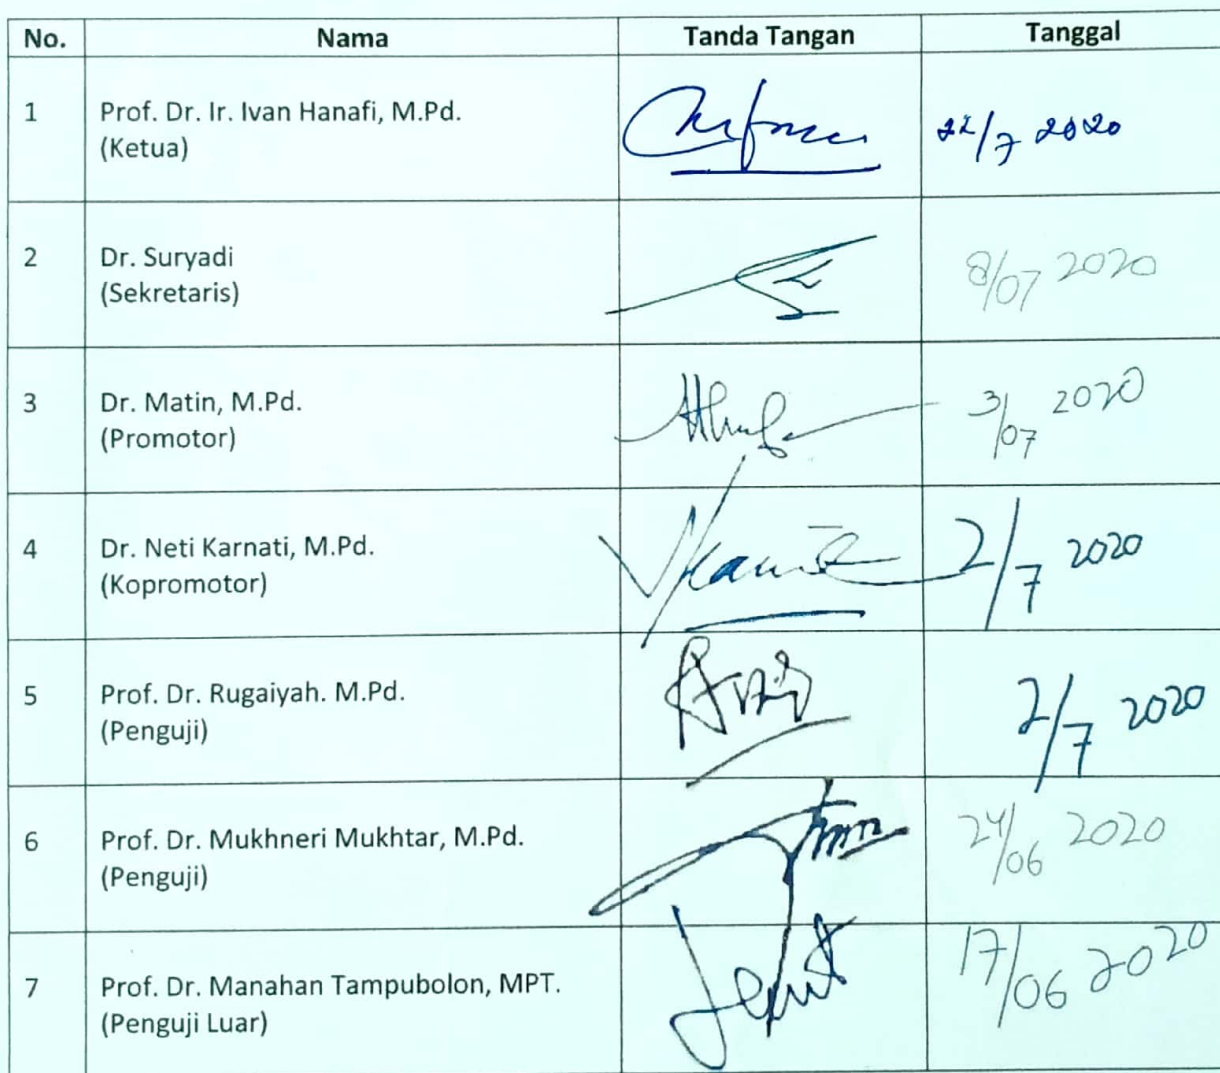 No. Nama Tanda Tangan Tanggal
1 Prof. Dr. Ir. Ivan Hanafi, M.Pd.
(Ketua)
/7 2020
2 Dr. Suryadi
(Sekretaris)
8/07 2020
3 Dr. Matin, M.Pd.
(Promotor)
3/07 2020
4 Dr. Neti Karnati, M.Pd.
(Kopromotor)
2/7 2020
5 Prof. Dr. Rugaiyah. M.Pd.
(Penguji)
2/7 2020
6 Prof. Dr. Mukhneri Mukhtar, M.Pd.
(Penguji)
24/06 2020
7 Prof. Dr. Manahan Tampubolon, MPT.
(Penguji Luar)
17/06 2020